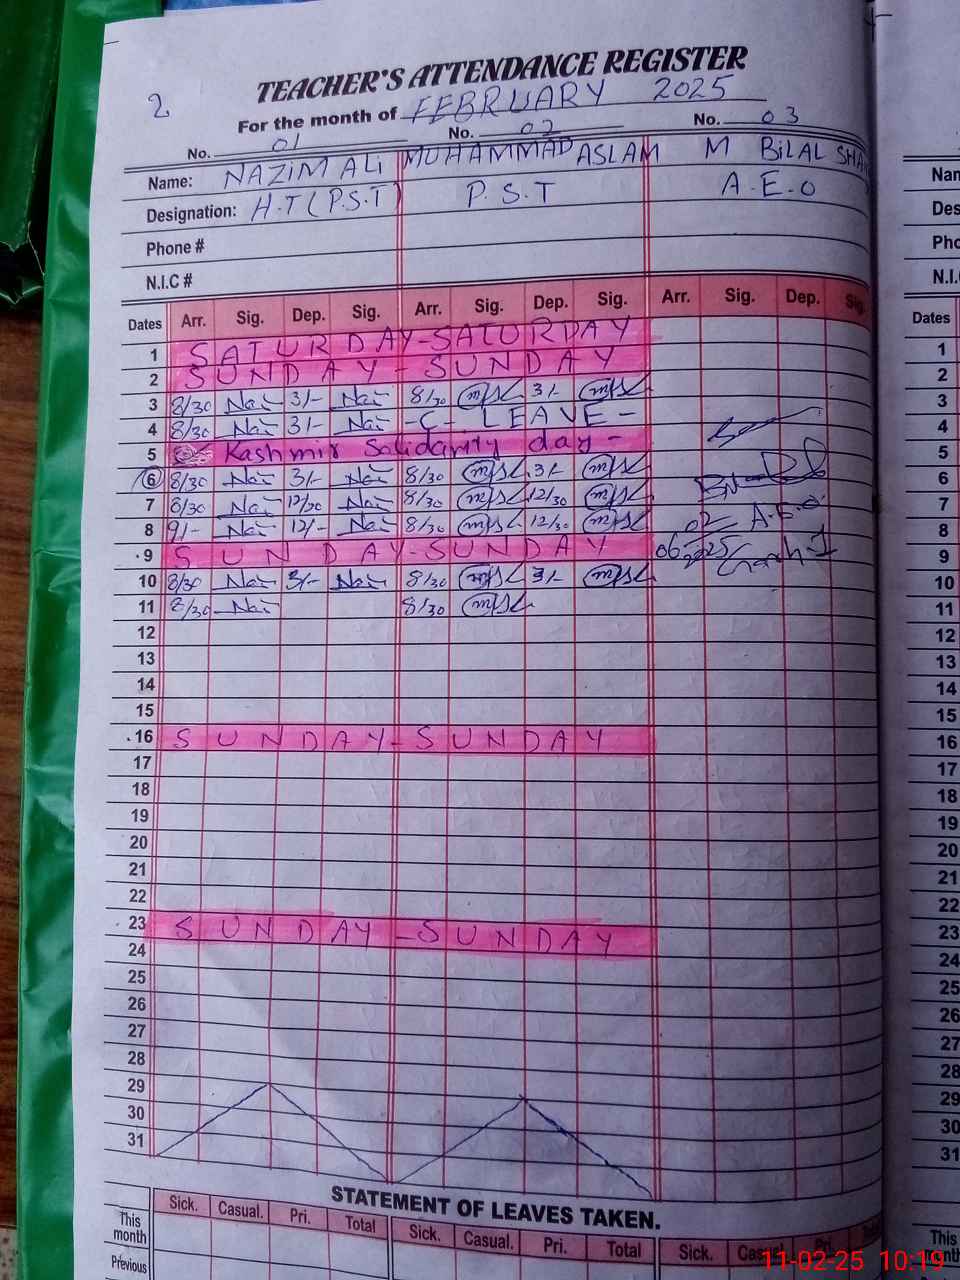 TEACHER'S ATTENDANCE REGISTER
2
For the month of FEBRUARY 2025
No. 01 No. 02 No. 03
Name: NAZIM ALI MUHAMMAD ASLAM M BILAL
Designation: H.T (P.S.T) P.S.T A.E.O
Phone #
N.I.C #
Dates Arr. Sig. Dep. Sig. Arr. Sig. Dep. Sig. Arr. Sig. Dep. Sig.
1 SATURDAY-SATURDAY
2 SUNDAY-SUNDAY
3 8/30 3/- 8/30 3/-
4 8/30 3/- -C- LEAVE-
5 Kashmir Solidarity day-
6 8/30 3/- 8/30 3/-
7 8/30 12/30 8/30 12/30
8 9/- 12/- 8/30 12/30 02 A.E.O
9 SUNDAY-SUNDAY 06 2025
10 8/30 3/- 8/30 3/-
11 8/30 8/30
12
13
14
15
16 SUNDAY-SUNDAY
17
18
19
20
21
22
23 SUNDAY-SUNDAY
24
25
26
27
28
29
30
31
STATEMENT OF LEAVES TAKEN.
Sick. Casual. Pri. Total Sick. Casual. Pri. Total Sick.
This month
Previous
Dates
1
2
3
4
5
6
7
8
9
10
11
12
13
14
15
16
17
18
19
20
21
22
23
24
25
26
27
28
29
30
31
This
11-02-25 10:19